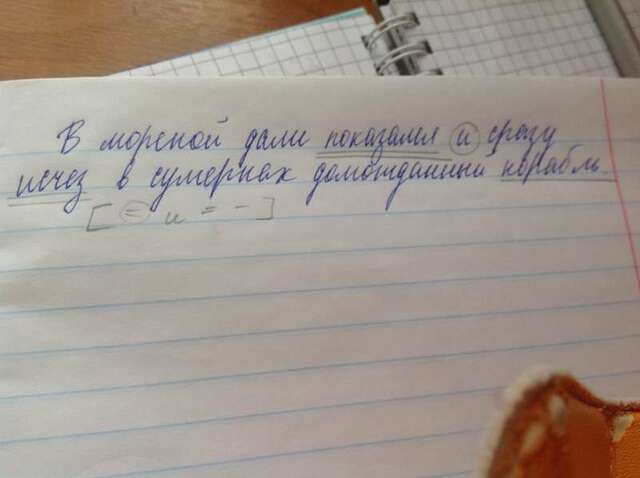 В морской дали показался и сразу
исчез в сумерках долгожданный корабль.
[ = и = - ]